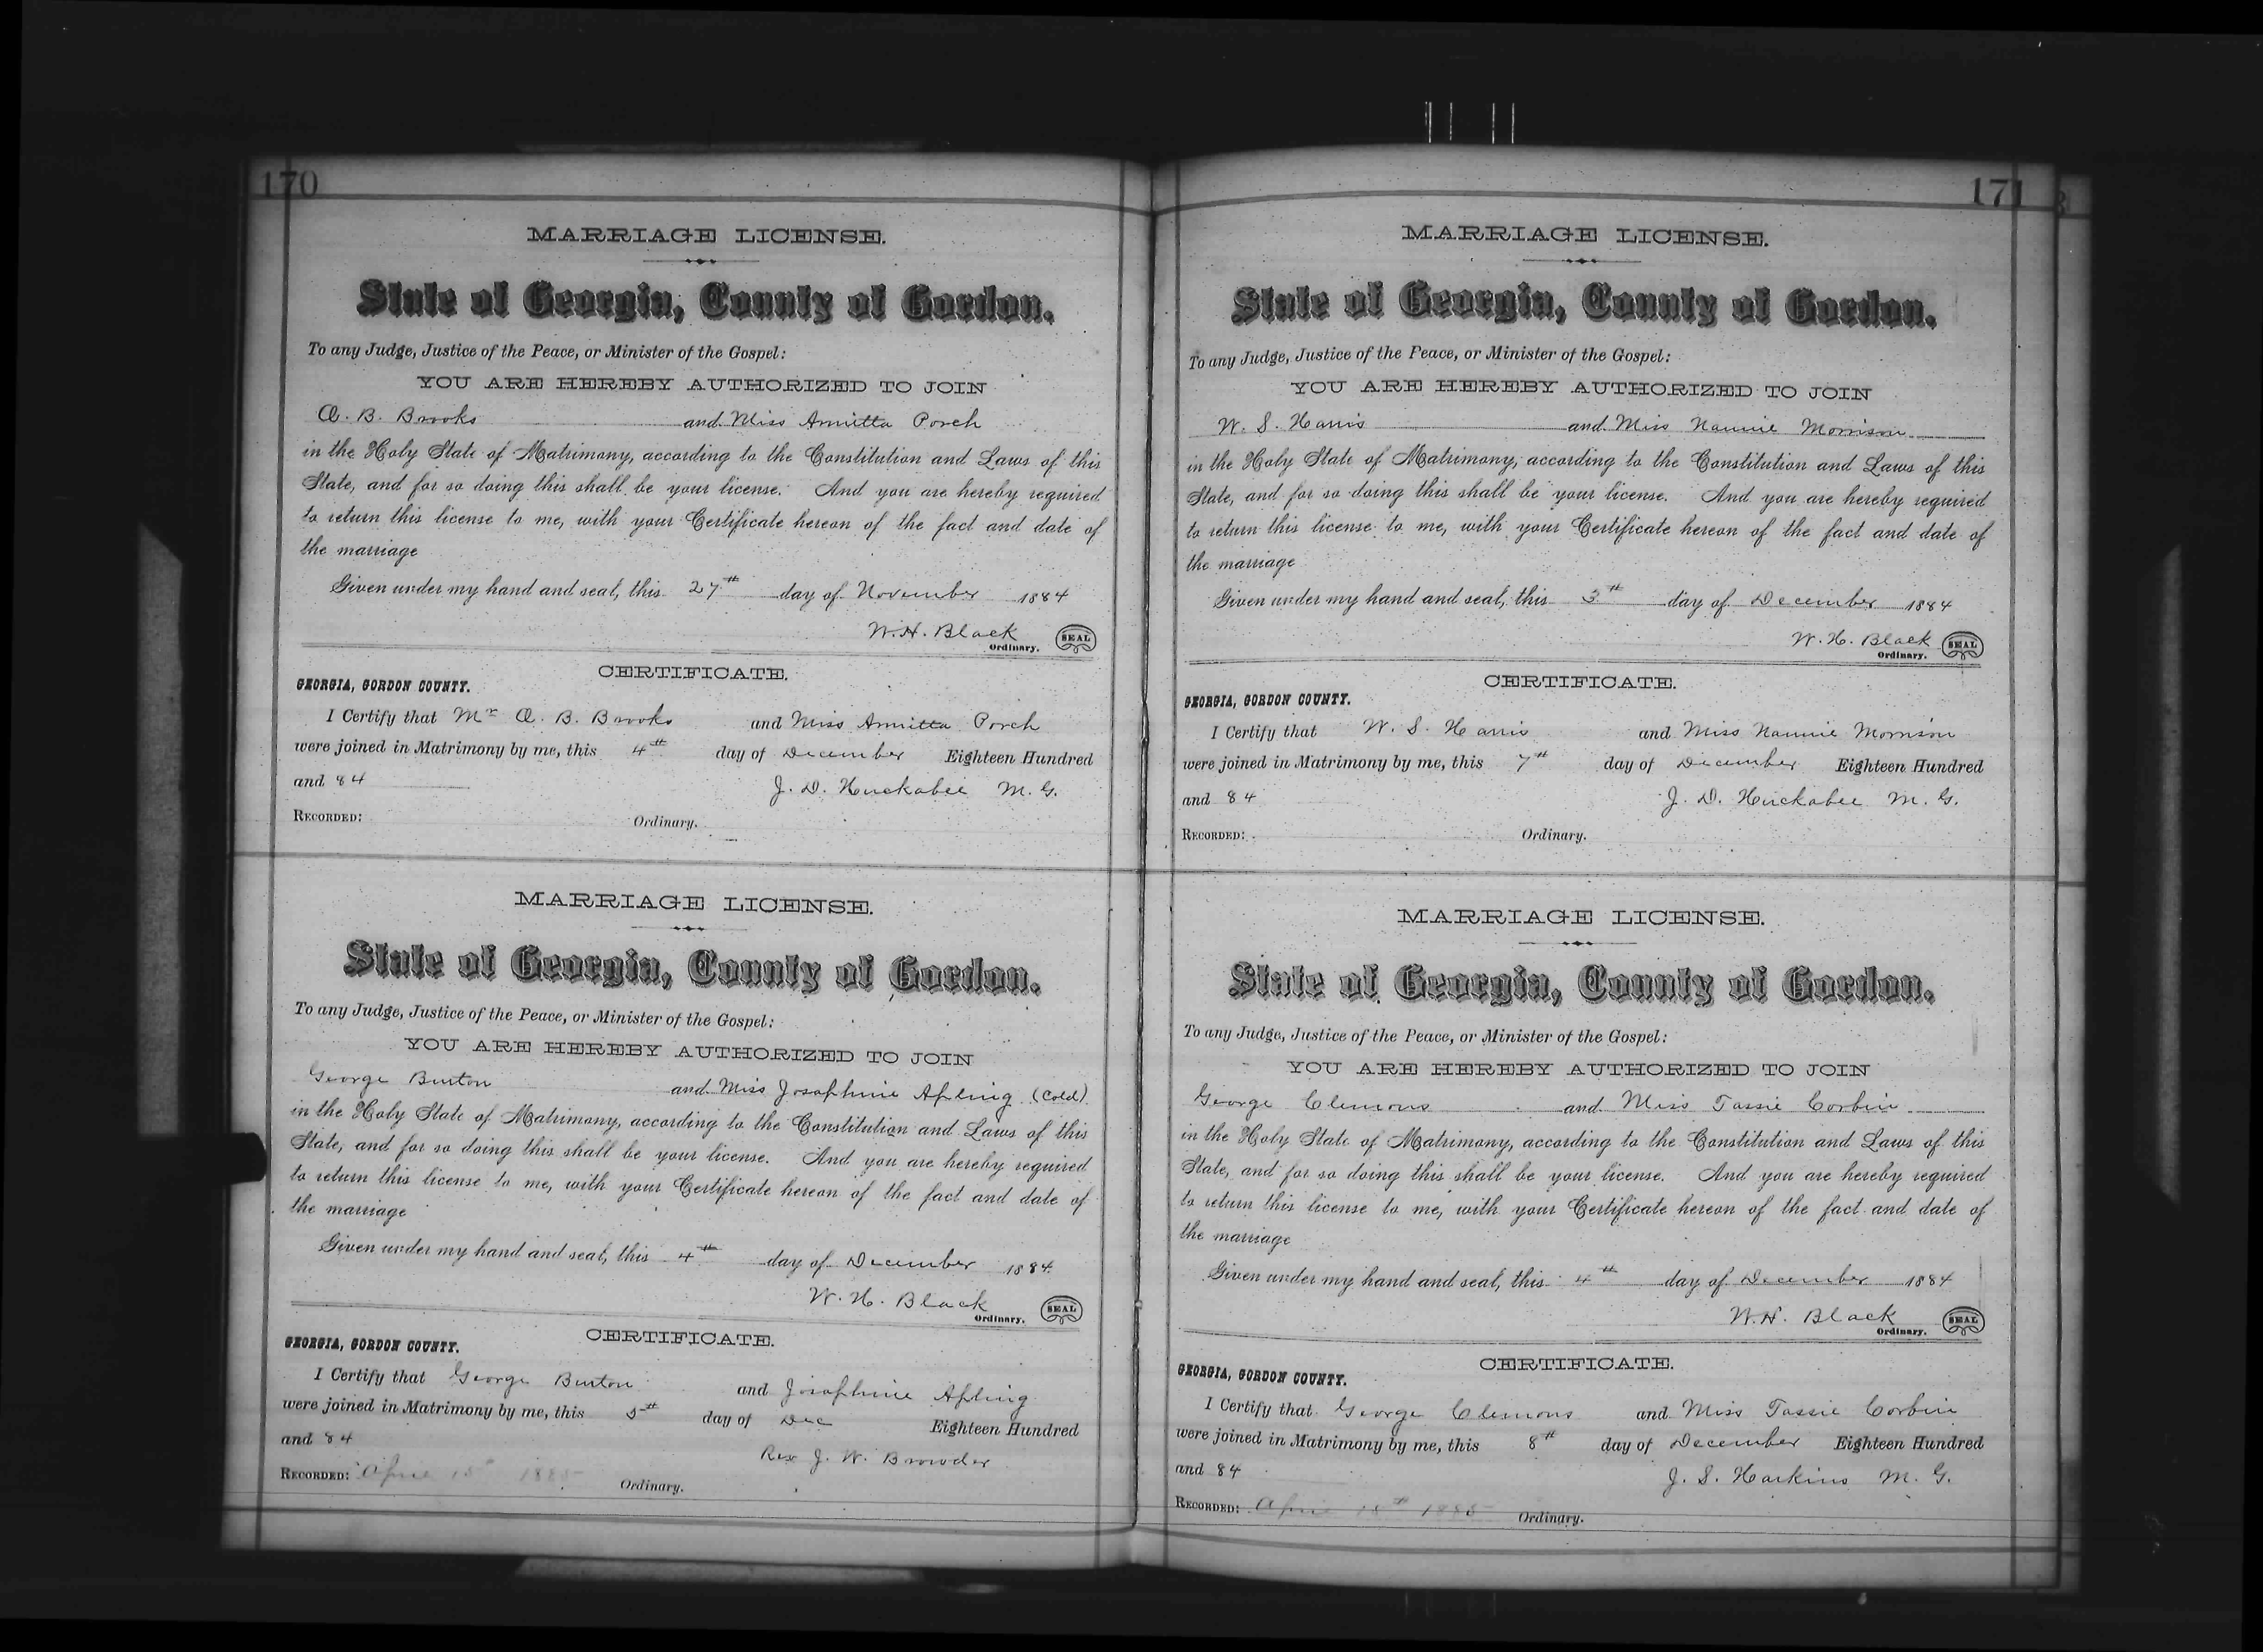 170
MARRIAGE LICENSE.
State of Georgia, County of Gordon.
To any Judge, Justice of the Peace, or Minister of the Gospel:
YOU ARE HEREBY AUTHORIZED TO JOIN
A. B. Brooks and Miss Armitta Porch
in the Holy State of Matrimony, according to the Constitution and Laws of this
State, and for so doing this shall be your license. And you are hereby required
to return this license to me, with your Certificate hereon of the fact and date of
the marriage
Given under my hand and seal, this 27th day of November 1884
W. H. Black SEAL
Ordinary.
CERTIFICATE.
GEORGIA, GORDON COUNTY.
I Certify that Mr A. B. Brooks and Miss Armitta Porch
were joined in Matrimony by me, this 4th day of December Eighteen Hundred
and 84 J. D. Huckabee M. G.
RECORDED: Ordinary.
MARRIAGE LICENSE.
State of Georgia, County of Gordon.
To any Judge, Justice of the Peace, or Minister of the Gospel:
YOU ARE HEREBY AUTHORIZED TO JOIN
George Burton and Miss Josaphine Apling (Cold)
in the Holy State of Matrimony, according to the Constitution and Laws of this
State, and for so doing this shall be your license. And you are hereby required
to return this license to me, with your Certificate hereon of the fact and date of
the marriage
Given under my hand and seal, this 4th day of December 1884
W. H. Black SEAL
Ordinary.
CERTIFICATE.
GEORGIA, GORDON COUNTY.
I Certify that George Burton and Josaphine Apling
were joined in Matrimony by me, this 5th day of Dec Eighteen Hundred
and 84 Rev J. W. Browder
RECORDED: April 15th 1885 Ordinary.
171
MARRIAGE LICENSE.
State of Georgia, County of Gordon.
To any Judge, Justice of the Peace, or Minister of the Gospel:
YOU ARE HEREBY AUTHORIZED TO JOIN
W. S. Harris and Miss Nannie Morrison
in the Holy State of Matrimony, according to the Constitution and Laws of this
State, and for so doing this shall be your license. And you are hereby required
to return this license to me, with your Certificate hereon of the fact and date of
the marriage
Given under my hand and seal, this 3th day of December 1884
W. H. Black SEAL
Ordinary.
CERTIFICATE.
GEORGIA, GORDON COUNTY.
I Certify that W. S. Harris and Miss Nannie Morrison
were joined in Matrimony by me, this 7th day of December Eighteen Hundred
and 84 J. D. Huckabee M. G.
RECORDED: Ordinary.
MARRIAGE LICENSE.
State of Georgia, County of Gordon.
To any Judge, Justice of the Peace, or Minister of the Gospel:
YOU ARE HEREBY AUTHORIZED TO JOIN
George Clemons and Miss Tassie Corbin
in the Holy State of Matrimony, according to the Constitution and Laws of this
State, and for so doing this shall be your license. And you are hereby required
to return this license to me, with your Certificate hereon of the fact and date of
the marriage
Given under my hand and seal, this 4th day of December 1884
W. H. Black SEAL
Ordinary.
CERTIFICATE.
GEORGIA, GORDON COUNTY.
I Certify that George Clemons and Miss Tassie Corbin
were joined in Matrimony by me, this 8th day of December Eighteen Hundred
and 84 J. S. Harkins M. G.
RECORDED: April 15th 1885 Ordinary.